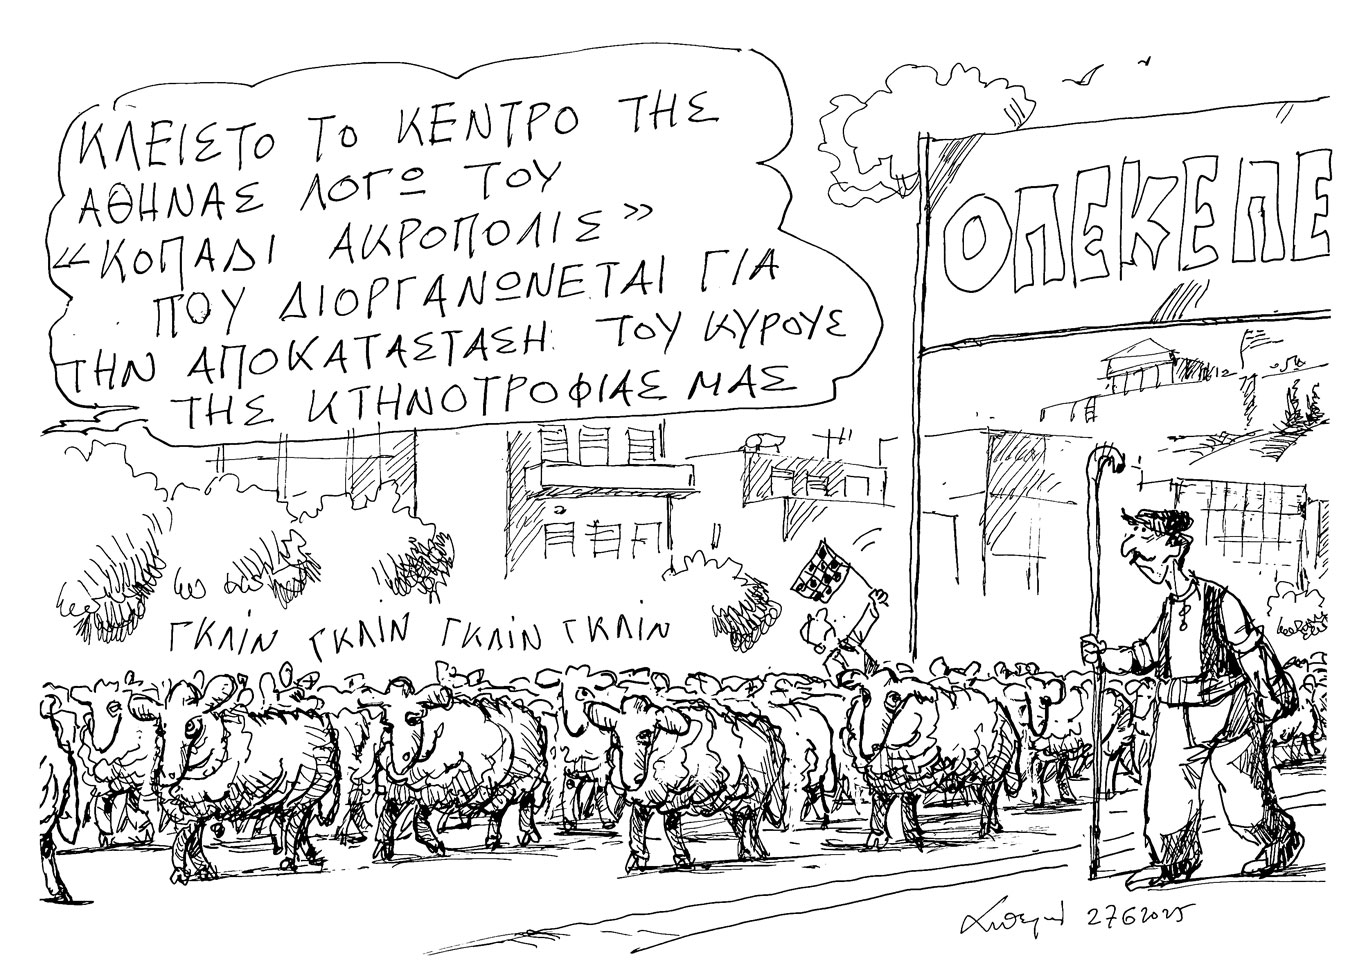 ΚΛΕΙΣΤΟ ΤΟ ΚΕΝΤΡΟ ΤΗΣ
ΑΘΗΝΑΣ ΛΟΓΩ ΤΟΥ
«ΚΟΠΑΔΙ ΑΚΡΟΠΟΛΙΣ»
ΠΟΥ ΔΙΟΡΓΑΝΩΝΕΤΑΙ ΓΙΑ
ΤΗΝ ΑΠΟΚΑΤΑΣΤΑΣΗ ΤΟΥ ΚΥΡΟΥΣ
ΤΗΣ ΚΤΗΝΟΤΡΟΦΙΑΣ ΜΑΣ
ΟΠΕΚΕΠΕ
ΓΚΛΙΝ ΓΚΛΙΝ ΓΚΛΙΝ ΓΚΛΙΝ
27 6 2025